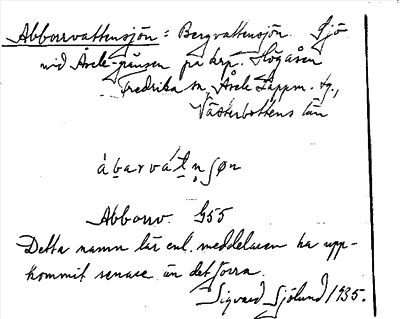 Abborrvattensjön = Bergvattensjön. Sjö
vid Åsele-gränsen på krp. Högåsen
Fredrika sn, Åsele Lappm. tg.,
Västerbottens län
ábarvátn̥ʃøn
Abborrv. G55
Detta namn lär enl. meddelaren ha upp-
kommit senare än det förra.
Sigvard Sjölund 1935.